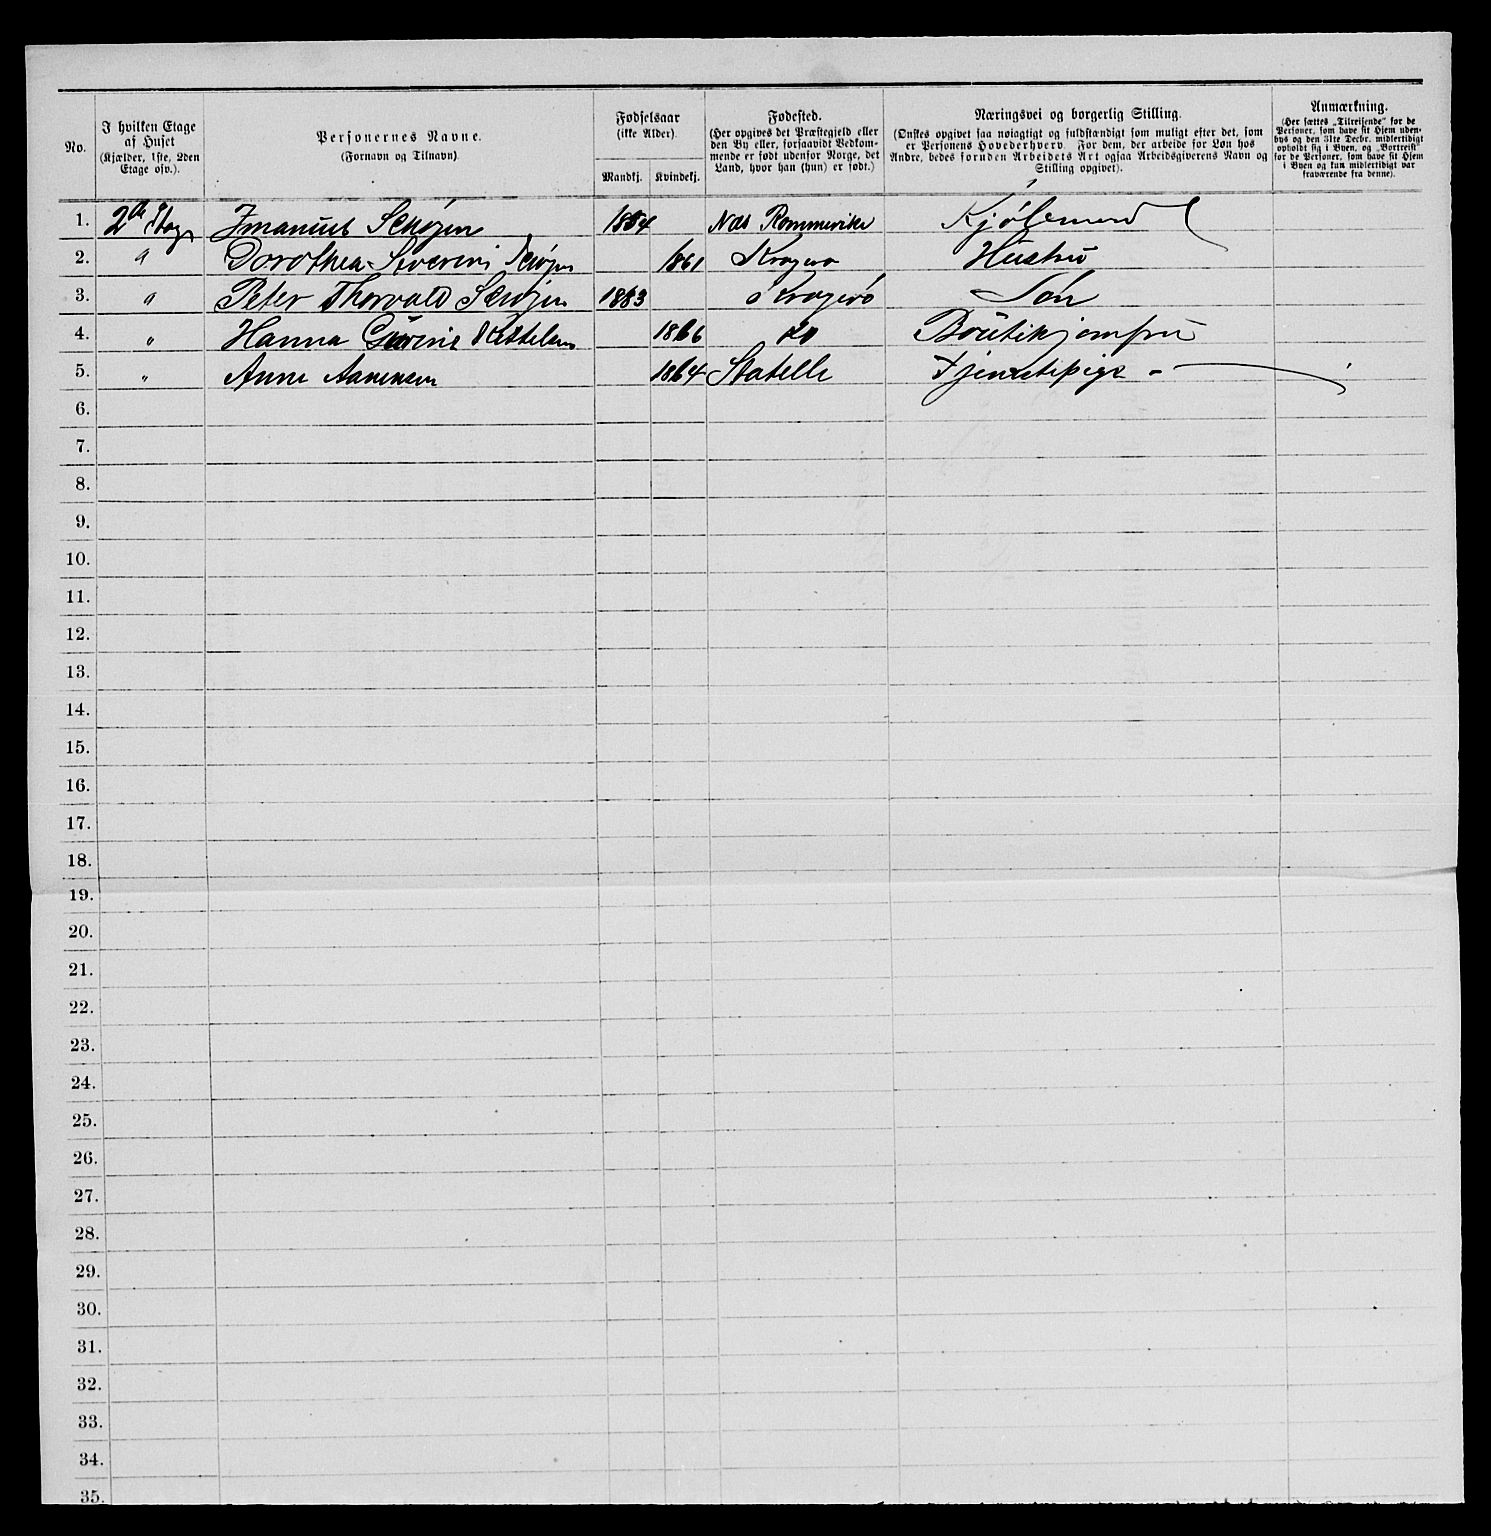 No.
I hvilken Etage af Huset (Kjælder, 1ste, 2den Etage osv.).
Personernes Navne. (Fornavn og Tilnavn)
Fødselsaar (ikke Alder).
Mandkj. Kvindekj.
Fødested. (Her opgives det Præstegjeld eller den By eller, forsaavidt Vedkommende er født udenfor Norge, det Land, hvor han (hun) er født.)
Næringsvei og borgerlig Stilling. (Ønskes opgivet saa nøiagtigt og fuldstændigt som muligt efter det, som er Personens Hovederhverv. For dem, der arbeide for Løn hos Andre, bedes foruden Arbeidets Art ogsaa Arbeidsgiverens Navn og Stilling opgivet).
Anmærkning. (Her sættes „Tilreisende" for de Personer, som have sit Hjem udenbys og den 31te Decbr. midlertidigt opholdt sig i Byen, og „Bortreist" for de Personer, som have sit Hjem i Byen og kun midlertidigt var fraværende fra denne).
1. 2de Etage Imanuel Schøyen 1854 Nes Rommerike Kjøbmand
2. " Dorothea Severini Schøyen 1861 Kragerø Hustru
3. " Peter Thorvald Schøyen 1883 Kragerø Søn
4. " Hanna Kettelsen 1866 do Boutikjomfru
5. " Anne Aanensen 1864 Statelle Tjenestepige
6.
7.
8.
9.
10.
11.
12.
13.
14.
15.
16.
17.
18.
19.
20.
21.
22.
23.
24.
25.
26.
27.
28.
29.
30.
31.
32.
33.
34.
35.